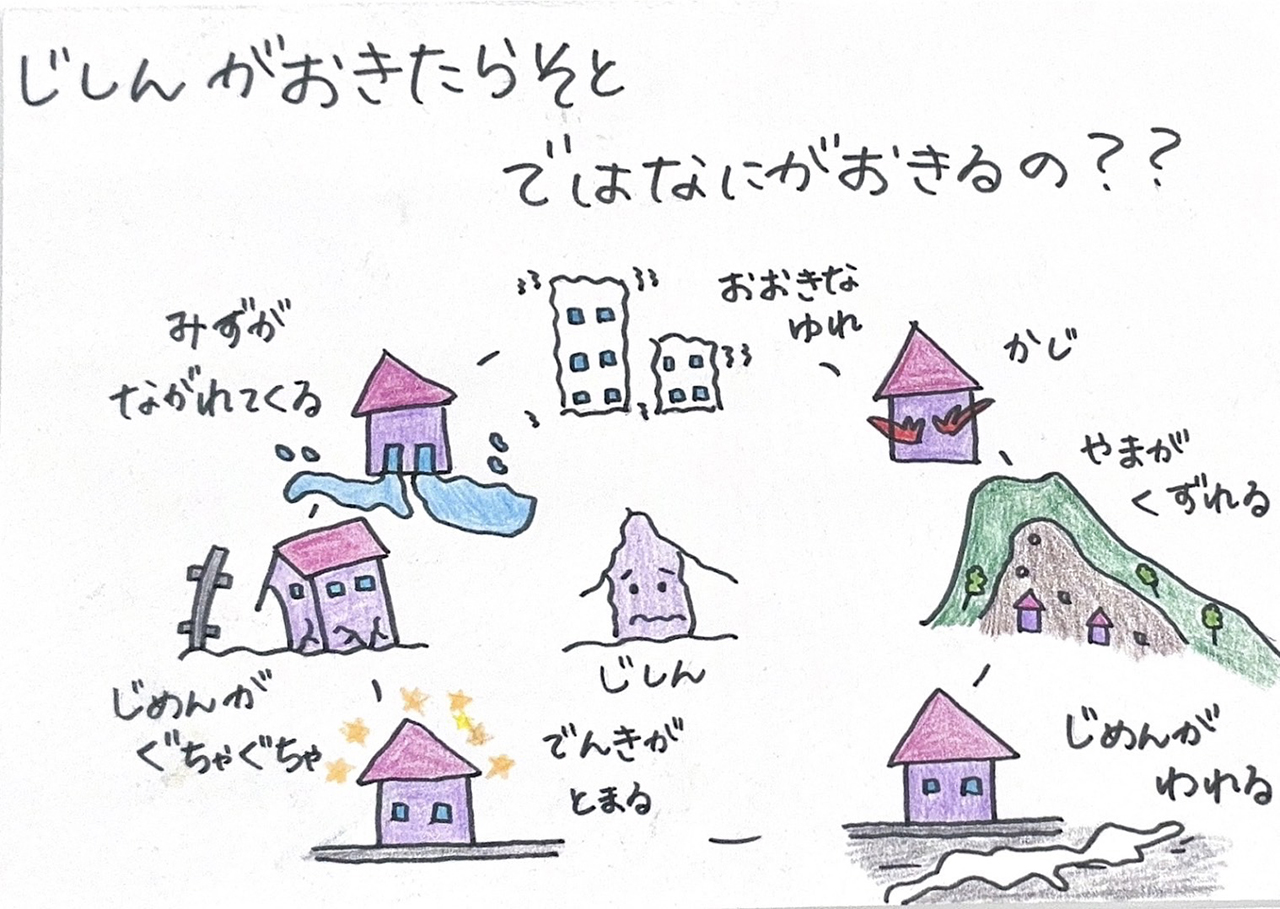 じしんがおきたらそと
ではなにがおきるの??
おおきな
ゆれ
かじ
やまが
くずれる
じめんが
われる
でんきが
とまる
じめんが
ぐちゃぐちゃ
みずが
ながれてくる
じしん